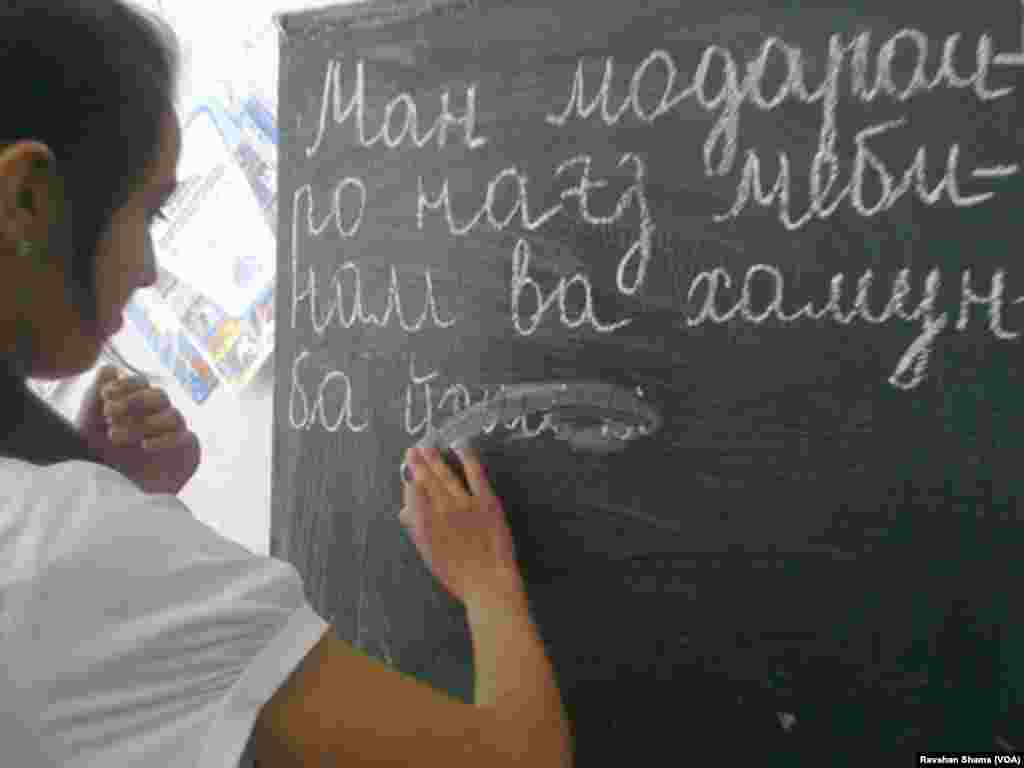 Ман модарои-
ро нағз меби-
нам ва хамин-
ба
Ravshan Shams (VOA)